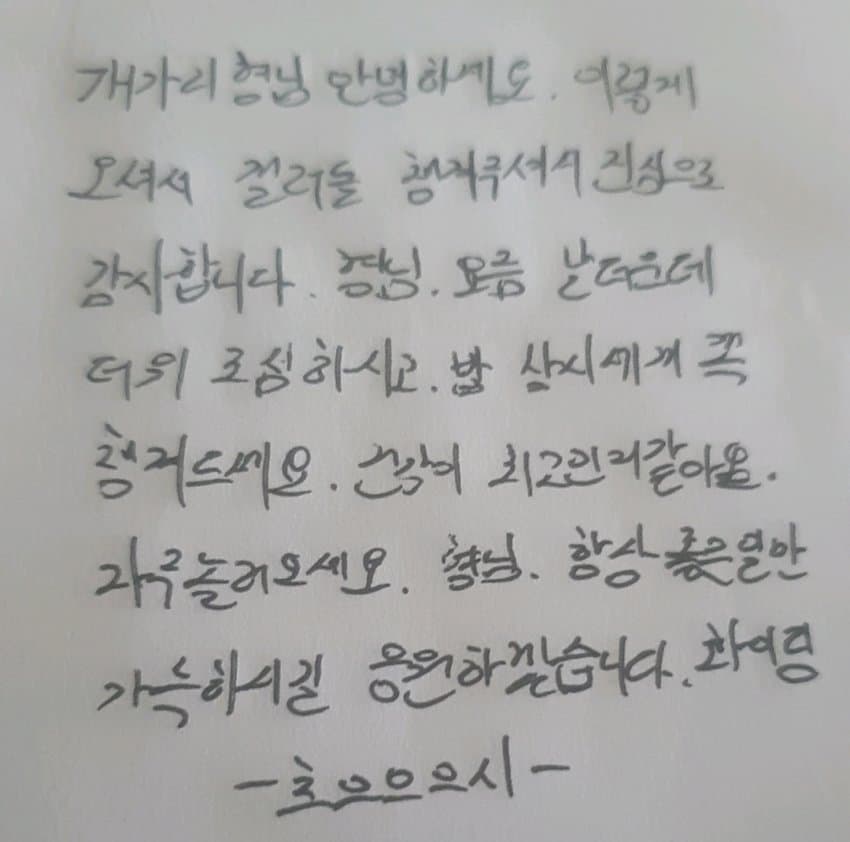 개가리형님 안녕하세요. 이렇게
오셔서 걸러들 챙겨주셔서 진심으로
감사합니다. 형님. 요즘 날더운데
더위 조심하시고. 밥 삼시세끼 꼭
챙겨드세요. 건강이 최고인거같아욤.
자주놀러오세요. 형님. 항상좋은일만
가득하시길 응원하겠습니다. 화이팅